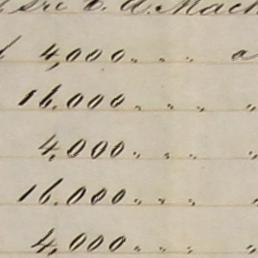 Sre C. A. Mach
4,000 „ „ a
16.000 „ „ „
4,000 „ „ „
16.000 „ „ „
4,000 „ „ „